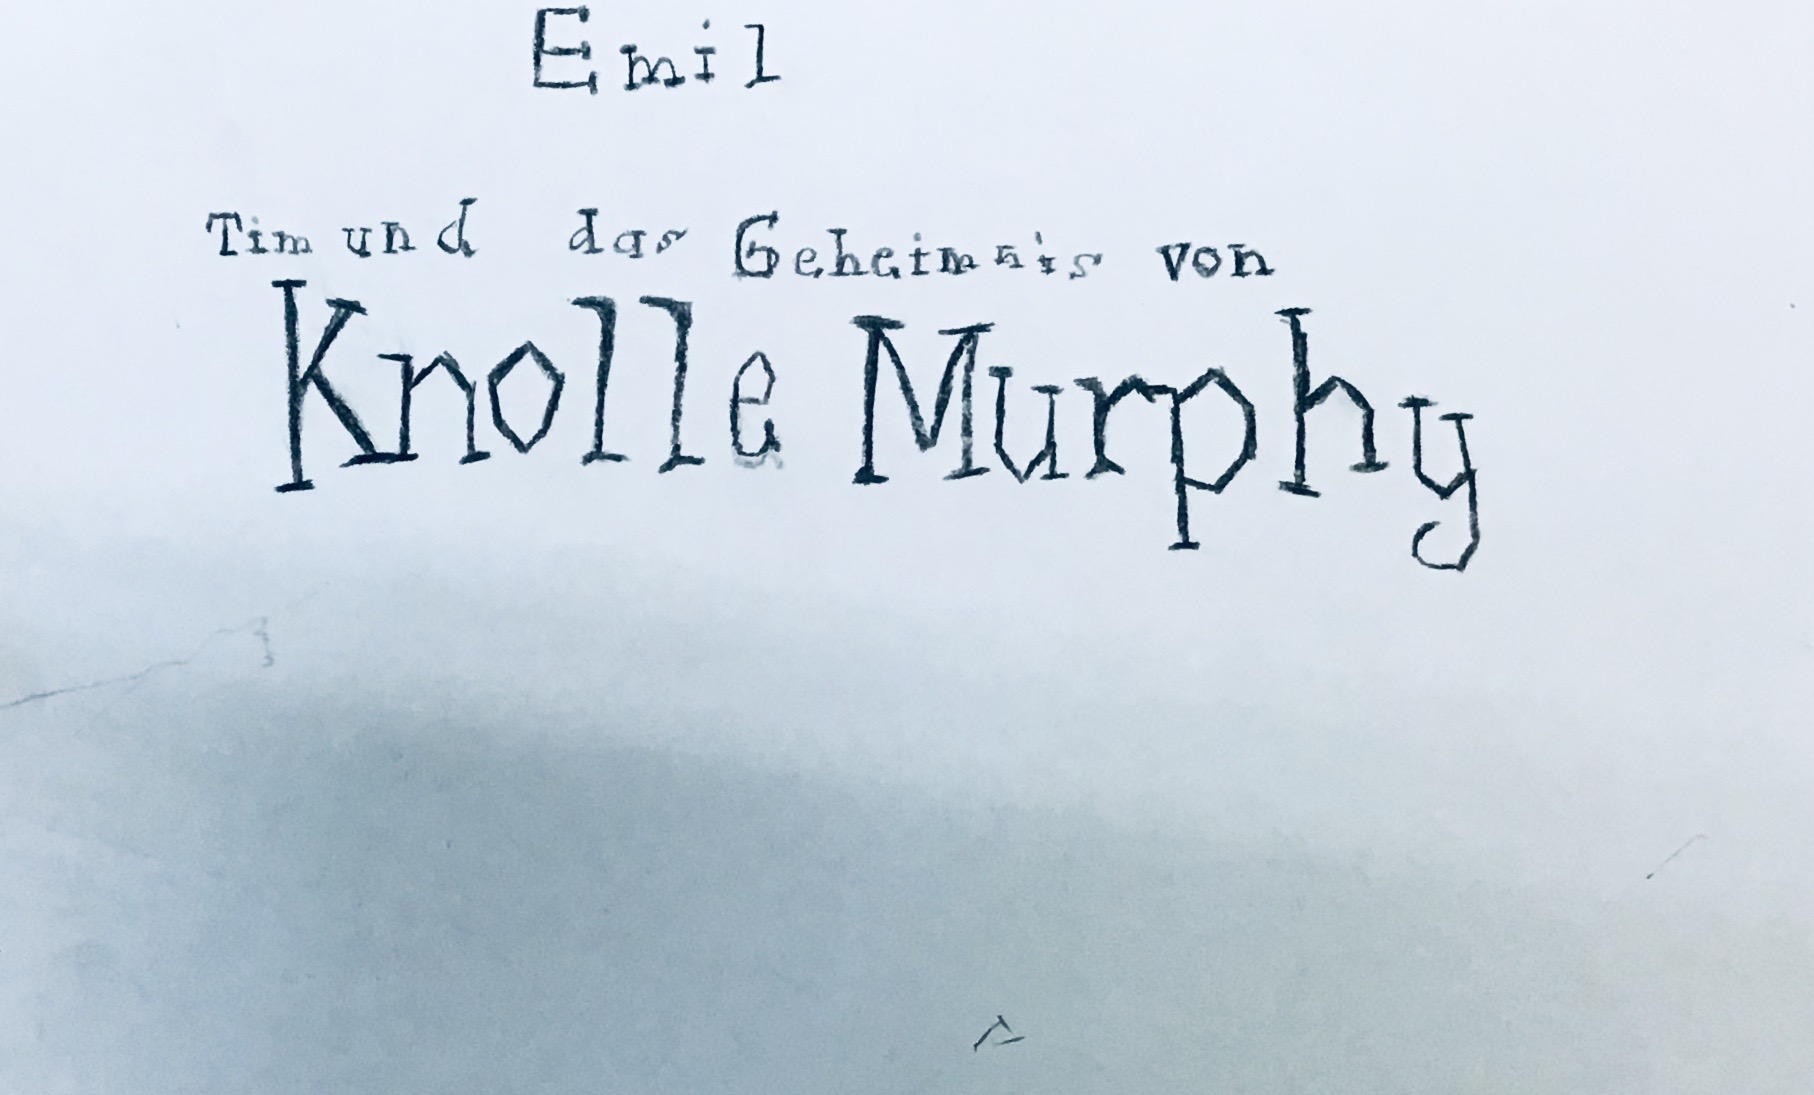 Emil
Tim und das Geheimnis von
Knolle Murphy